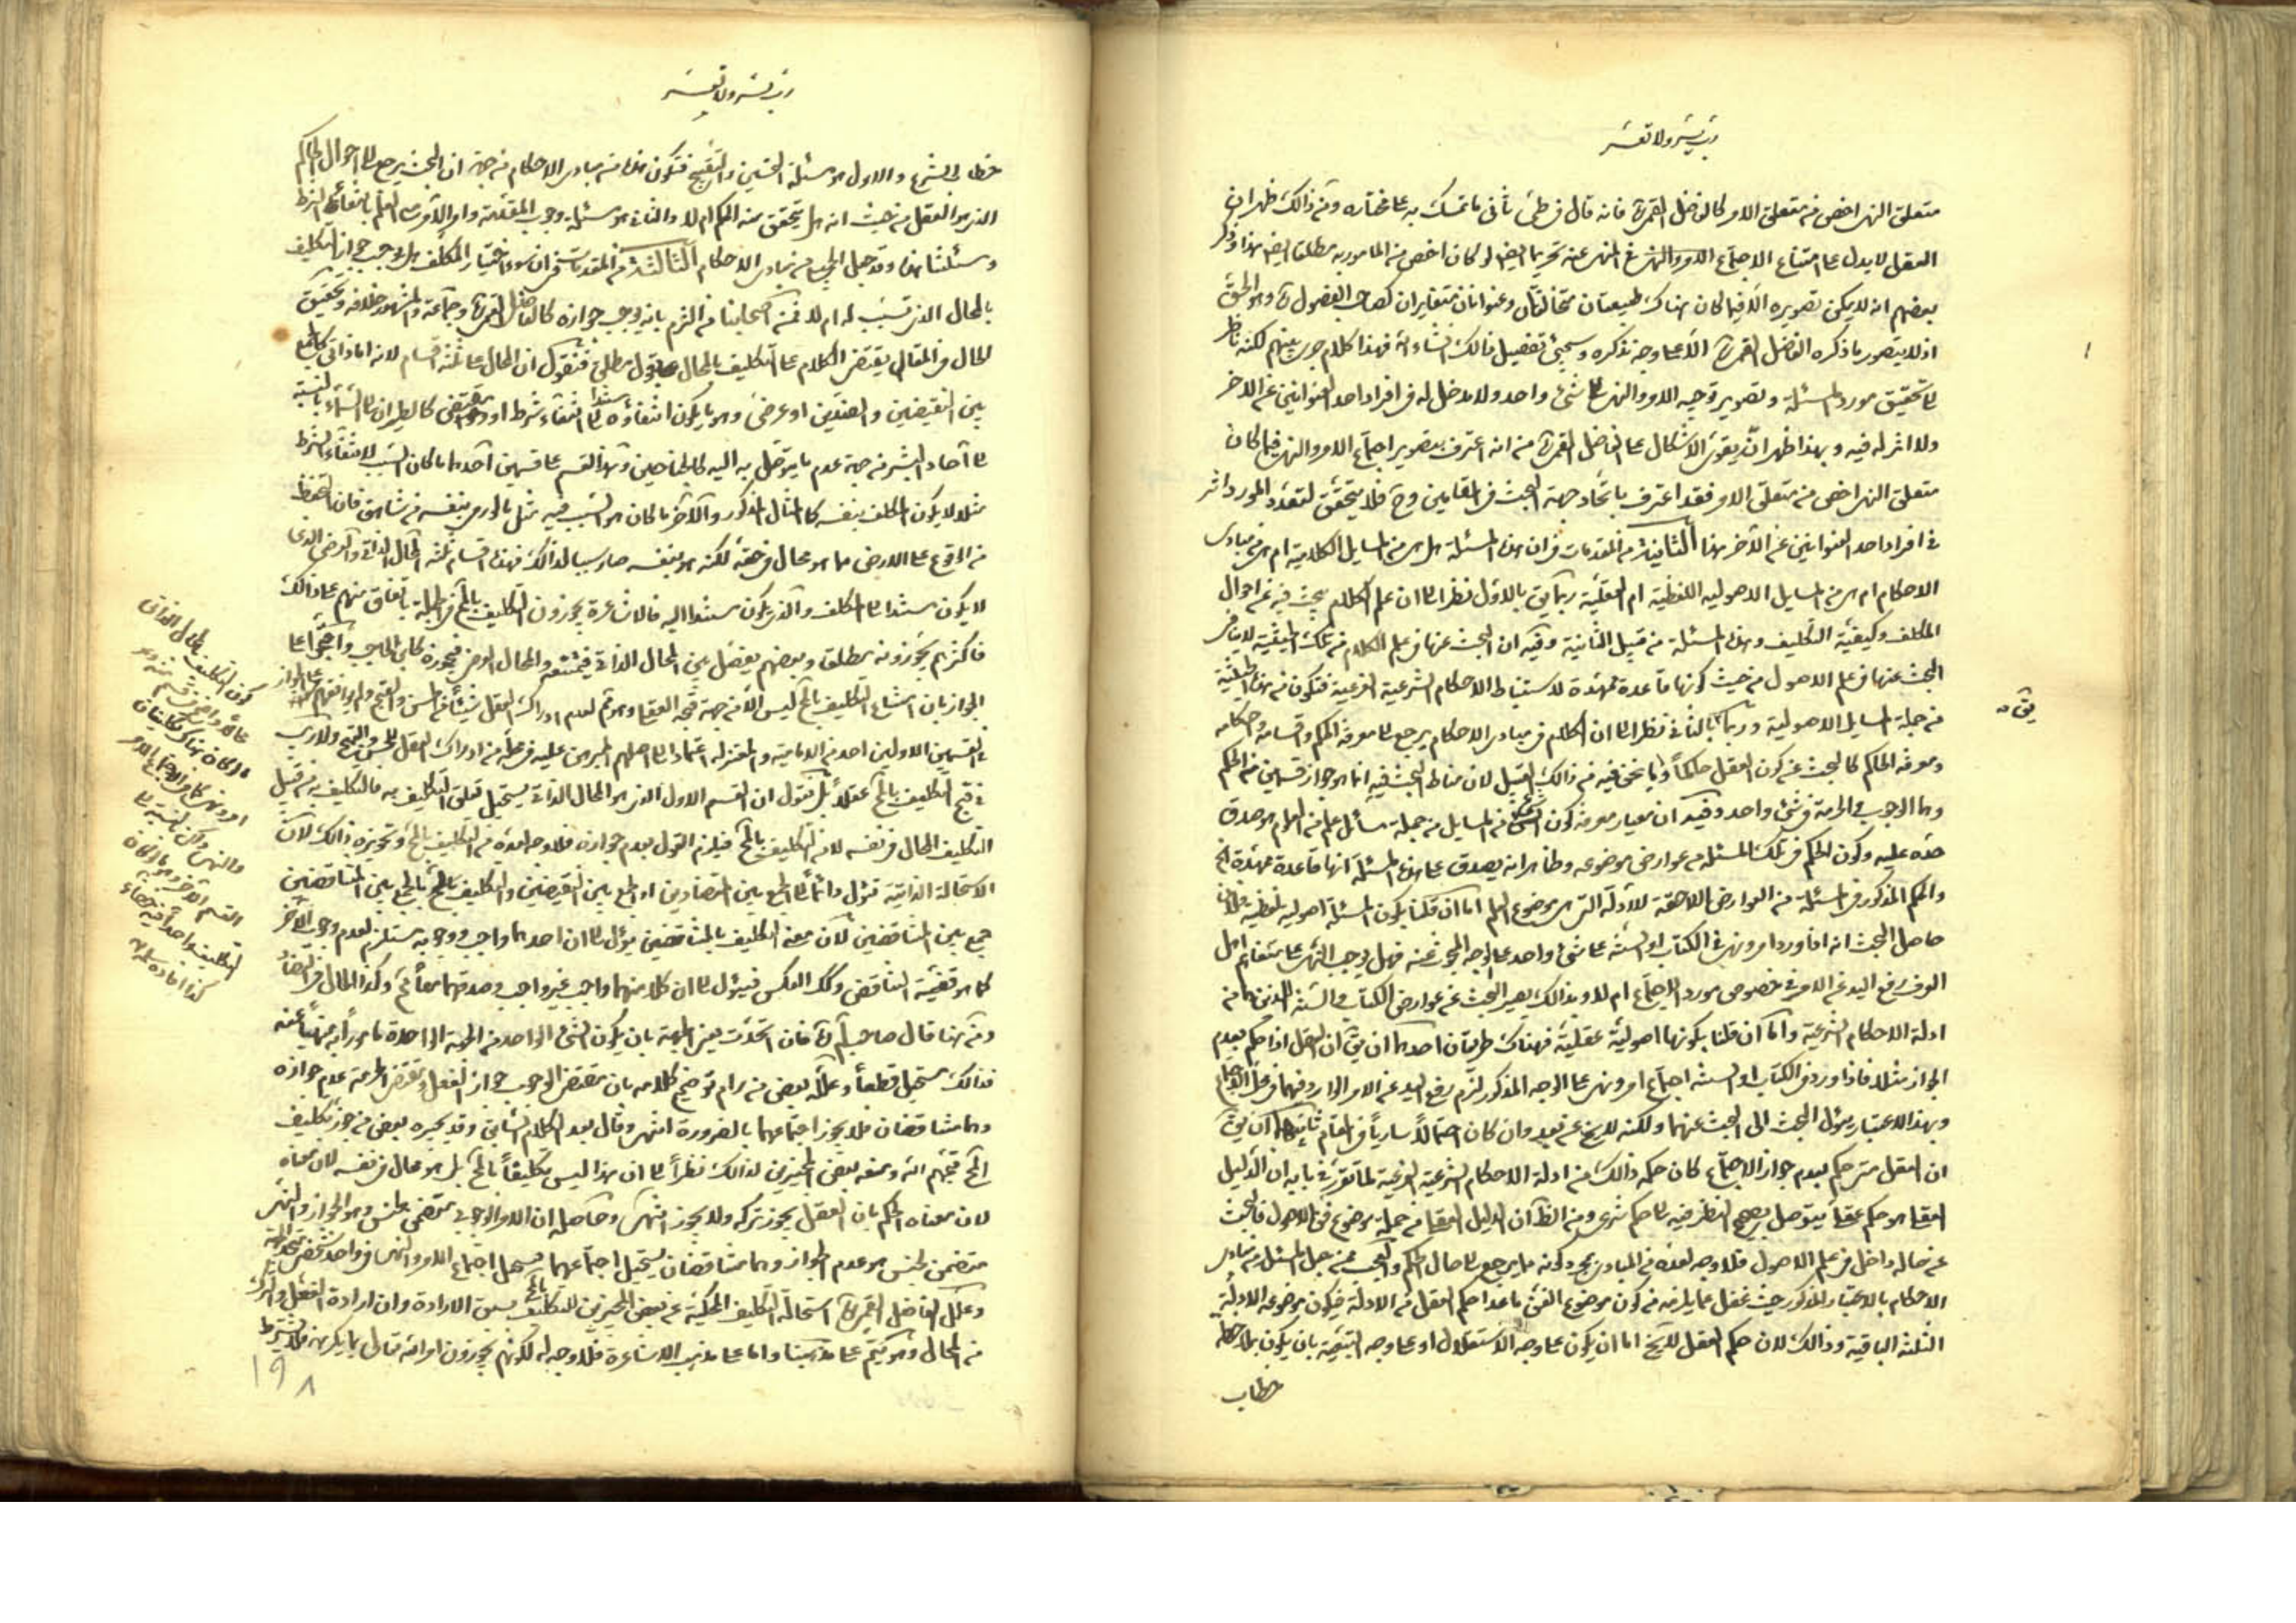 رب يسر ولا تعسر
متعلق النهى اخص من متعلق الامر كالفاضل القمى ره فانه قال فى طى ثانى ما تمسك به على مختاره ومن ذالك ظهر ان
العقل لا يدل على امتناع الاجتماع الامر والنهى فى المنهى عنه تحريما ايضا لو كان اخص من المامور به مطلقا ايضا هذا وذكر
بعضهم انه لا يمكن تصويره الا فيما كان هناك طبيعتان متخالفتان وعنوانان متغايران كصاحب الفصول ره وهو الحق
اذ لا يتصور ما ذكره الفاضل القمى ره الا على وجه نذكره وسيجئ تفصيل ذالك انشاء الله فهذا كلام جرى بينهم لكنه ناظر
الى تحقيق مورد المسئلة وتصوير توجيه الامر والنهى الى شئ واحد ولا مدخل له فى افراد احد العنوانين عن الاخر
ولا اثر له فيه وبهذا ظهر انه يقوى الاشكال على الفاضل القمى ره من انه اعترف بتصوير اجتماع الامر والنهى فيما كان
متعلق النهى اخص من متعلق الامر فقد اعترف باتحاد جهة البحث فى المقامين وح فلا يتحقق لتعدد المورد اثر
فى افراد احد العنوانين عن الآخر هذا الثانية من المقدمات فى ان هذه المسئلة هل هى من المسايل الكلامية ام هى من مبادى
الاحكام ام هى من المسايل الاصوليه اللفظية ام العقلية ربما يق بالاول نظرا الى ان علم الكلام يبحث فيه عن احوال
المكلف وكيفية التكليف وهذه المسئلة من قبيل الثانية وفيه ان البحث عنها فى علم الكلام من تلك الحيثية لا ينافى
البحث عنها فى علم الاصول من حيث كونها قاعدة ممهدة لاستنباط الاحكام الشرعية الفرعية فتكون من هذه الحيثية
من جملة المسايل الاصولية وربما يق بالثانى نظرا الى ان الكلام فى مبادى الاحكام يرجع الى معرفة الحكم واقسامه واحكامه
ومعرفة الحاكم كالبحث عن كون العقل حاكما وما نحن فيه من ذالك القبيل لان مناط البحث فيه انما هو جواز قسمين من الحكم
وهما الوجوب والحرمة فى شئ واحد وفيه ان معيار معرفة كون الشئ من المسايل من جملة مسائل علم من العلوم هو صدق
حده عليه وكون الحكم فى تلك المسئلة من عوارض موضوعه وظاهر انه يصدق على هذه المسئلة انها قاعدة ممهدة الخ
والحكم المذكور فى المسئلة من العوارض اللاحقة للادلة التى هى موضوع العلم اما ان قلنا بكون المسئلة اصولية لفظية فلان
حاصل البحث انه اذا ورد امر ونهى فى الكتاب او السنة على شئ واحد على الوجه المبحوث عنه فهل يوجب النهى على متفاهم اهل
العرف رفع اليد عن الامر فى خصوص مورد الاجتماع ام لا وبذالك يصير البحث عن عوارض الكتاب والسنة اللذين هما من
ادلة الاحكام الشرعية واما ان قلنا بكونها اصولية عقلية فهناك طريقان احدهما ان يق ان العقل اذا حكم بعدم
الجواز مثلا فاذا ورد فى الكتاب او السنة اجتماع امر ونهى على الوجه المذكور لزم رفع اليد عن الامر الوارد فيهما فى محل الاجتماع
وبهذا الاعتبار يئول البحث الى البحث عنهما ولكنه لا يخ عن بعد وان كان احتمالا ساريا فى المقام ثانيهما ان يق
ان العقل متى حكم بعدم جواز الاجتماع كان حكمه ذالك من ادلة الاحكام الشرعية الفرعية لما تقرر فى بابه ان الدليل
العقلى هو حكم عقلى يتوصل بصحيح النظر فيه الى حكم شرعى ومن الظ ان الدليل العقلى من جملة موضوع فن الاصول فالبحث
عن حاله داخل فى علم الاصول فلا وجه لعده من المبادى بمجرد كونه مما يرجع الى حال الحكم والعجب ممن جعل المسئلة من مبادى
الاحكام بالاعتبار المذكور حيث غفل عما يلزمه من كون موضوع الفن ما عدا حكم العقل من الادلة فيكون موضوعه الادلة
الثلثة الباقية وذالك لان حكم العقل لا يخ اما ان يكون على وجه الاستقلال او على وجه التبعية بان يكون بملاحظة
خطاب
يق ره
رب يسر ولا تعسر
خطاب الشرع والاول هو مسئلة التحسين والتقبيح فتكون هذه من مبادى الاحكام من جهة ان البحث يرجع الى احوال الحاكم
الذى هو العقل من حيث انه هل يتحقق منه الحكم ام لا والثانى هو مسئلة وجوب المقدمة وامر الآمر مع العلم بانتفاء الشرط
ومسئلتنا هذه وقد جعل الجميع من مبادى الاحكام الثالثة من المقدمات فى ان سوء اختيار المكلف هل يوجب جواز التكليف
بالمحال الذى تسبب له ام لا فمن اصحابنا من التزم بانه يوجب جوازه كالفاضل القمى ره وجماعة والمشهور خلافه وتحقيق
الحال فى المقال يقتضى الكلام على التكليف بالمحال بقول مطلق فنقول ان المحال على ثلثة اقسام لانه اما ذاتى كالجمع
بين النقيضين والضدين او عرضى وهو ما يكون انتفاؤه مستندا الى انتفاء شرط او مقتضى كالطيران الى السماء بالنسبة
الى آحاد البشر من جهة عدم ما يتوصل به اليه كالجناحين وهذا القسم على قسمين احدهما ما كان السبب لانتفاء الشرط
مثلا لا يكون المكلف بنفسه كالمثال المذكور والآخر ما كان هو السبب فيه مثل ما لو رمى بنفسه من شاهق فان الحفظ
من الوقوع على الارض مما هو محال فى حقه لكنه هو بنفسه صار سببا لذالك فهذه اقسام ثلثة المحال الذاتى والعرضى الذى
لا يكون مستندا الى المكلف والذى يكون مستندا اليه فالاشاعرة يجوزون التكليف بالمح فى الجملة باتفاق منهم على ذالك
فاكثرهم يجوزونه مطلقا وبعضهم يفصل بين المحال الذاتى فيمنعه والمحال العرضى فيجوزه كابن الحاجب واحتجوا على
الجواز بان امتناع التكليف بالمح ليس الا من جهة قبحه العقلى وهو ثم لعدم ادراك العقل شيئا من الحسن والقبح ولم يوافقهم على الجواز
فى القسمين الاولين احد من الامامية والمعتزلة اعتمادا الى اصلهم المبرهن عليه فى محله من ادراك العقل للحسن والقبح ولا ريب
فى قبح التكليف بالمح عقلا بل نقول ان القسم الاول الذى هو المحال الذاتى يستحيل تعلق التكليف به فالتكليف به من قبيل
التكليف المحال فى نفسه لا من التكليف بالمح فيلزم القول بعدم جوازه فلا وجه لعده من التكليف بالمح وتجويزه ذالك لان
الاستحالة الذاتية تئول دائما الى الجمع بين المتضادين او الجمع بين النقيضين والتكليف بالمح بالجمع بين المتناقضين
جمع بين المتناقضين لان معنى التكليف بالمتناقضين يئول الى ان احدهما واجب ووجوبه مستلزم لعدم وجوب الآخر
كما هو قضية التناقض وكك العكس فيئول الى ان كلا منهما واجب غير واجب وصدقهما معا مح وكذا الحال فى التضاد
ومن هنا قال صاحب لم ره فان اتحدت يعنى الجهة بان يكون الشئ الواحد من الجهة الواحدة مامورا به منهيا عنه
فذالك مستحيل قطعا وعلله بعض من رام توضيح كلامه بان مقتضى الوجوب جواز الفعل ومقتضى الحرمة عدم جوازه
وهما متناقضان فلا يجوز اجتماعهما بالضرورة انتهى وقال بعد الكلام السابق وقد يجيزه بعض من جوز تكليف
المح قبحهم الله ومنعه بعض المجيزين لذالك نظرا الى ان هذا ليس تكليفا بالمح بل هو محال فى نفسه لان معناه
لان معناه الحكم بان الفعل يجوز تركه ولا يجوز انتهى وحاصله ان الامر الوجوبى متضمن لجنس وهو الجواز والنهى
متضمن لجنس هو عدم الجواز وهما متناقضان يستحيل اجتماعهما فيستحيل اجتماع الامر والنهى فى واحد شخصى متحد الجهة
وعلل الفاضل القمى ره استحالة التكليف المحكية عن بعض المجيزين للتكليف بالمح بسبق الارادة وان ارادة الفعل والترك
من المحال وهو يتم على مذهبنا واما على مذهب الاشاعرة فلا وجه له لكونهم يجوزون امر الله تعالى بما يكرهه فلا يشترط
كون التكليف بالمحال الذاتى
القسم الآخر
التكليف واحدا
كذا افاده سلمه
١٩٨